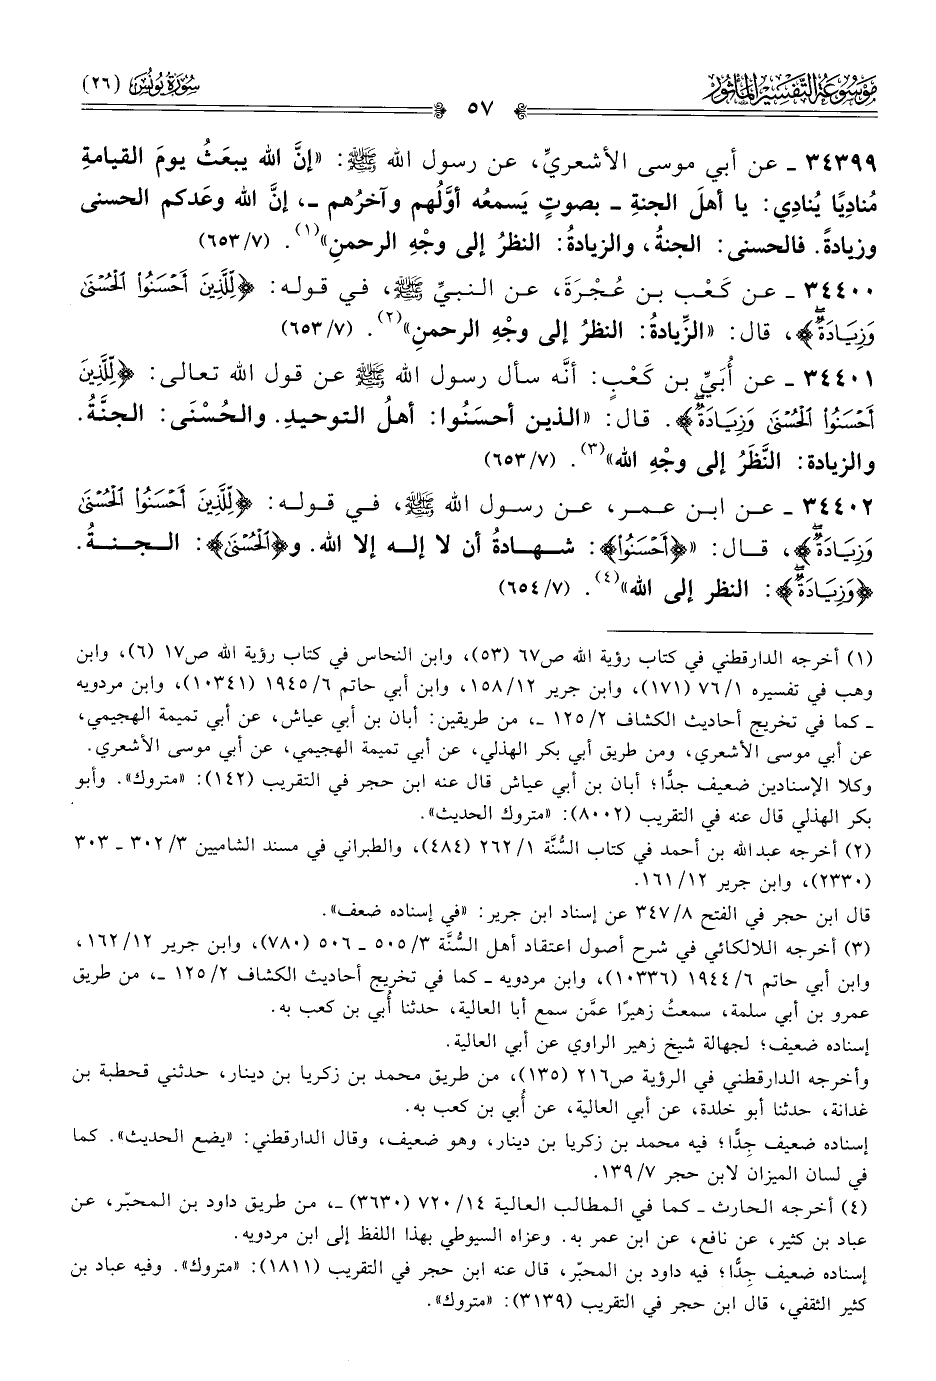 موسوعة التفسير المأثور
٥٧
سورة يونس (٢٦)
٣٤٣٩٩ ـ عن أبي موسى الأشعريِّ، عن رسول الله ﷺ: «إنَّ الله يبعَثُ يومَ القيامةِ
مُناديًا يُنادِي: يا أهلَ الجنةِ ـ بصوتٍ يَسمعُه أوَّلُهم وآخرُهم ـ، إنَّ الله وعَدكم الحسنى
وزيادةً. فالحسنى: الجنةُ، والزيادةُ: النظرُ إلى وجْهِ الرحمنِ»(١). (٦٥٣/٧)
٣٤٤٠٠ ـ عن كَعْب بن عُجْرَةَ، عن النبيِّ ﷺ، في قوله: ﴿لِّلَّذِينَ أَحْسَنُوا۟ ٱلْحُسْنَىٰ
وَزِيَادَةٌۖ﴾، قال: «الزِّيادةُ: النظرُ إلى وجْهِ الرحمنِ»(٢). (٦٥٣/٧)
٣٤٤٠١ ـ عن أُبَيِّ بن كَعْبٍ: أنَّه سأل رسول الله ﷺ عن قول الله تعالى: ﴿لِّلَّذِينَ
أَحْسَنُوا۟ ٱلْحُسْنَىٰ وَزِيَادَةٌۖ﴾. قال: «الذين أحسَنُوا: أهلُ التوحيدِ. والحُسْنَى: الجنَّةُ.
والزيادة: النَّظَرُ إلى وجْهِ الله»(٣). (٦٥٣/٧)
٣٤٤٠٢ ـ عن ابن عمر، عن رسول الله ﷺ، في قوله: ﴿لِّلَّذِينَ أَحْسَنُوا۟ ٱلْحُسْنَىٰ
وَزِيَادَةٌۖ﴾، قال: «﴿أَحْسَنُوا۟﴾: شهادةُ أن لا إله إلا الله. و﴿ٱلْحُسْنَىٰ﴾: الجنةُ.
﴿وَزِيَادَةٌۖ﴾: النظر إلى الله»(٤). (٦٥٤/٧)
(١) أخرجه الدارقطني في كتاب رؤية الله ص٦٧ (٥٣)، وابن النحاس في كتاب رؤية الله ص١٧ (٦)، وابن
وهب في تفسيره ٧٦/١ (١٧١)، وابن جرير ١٥٨/١٢، وابن أبي حاتم ١٩٤٥/٦ (١٠٣٤١)، وابن مردويه
ـ كما في تخريج أحاديث الكشاف ١٢٥/٢ ـ، من طريقين: أبان بن أبي عياش، عن أبي تميمة الهجيمي،
عن أبي موسى الأشعري، ومن طريق أبي بكر الهذلي، عن أبي تميمة الهجيمي، عن أبي موسى الأشعري.
وكلا الإسنادين ضعيف جدًّا؛ أبان بن أبي عياش قال عنه ابن حجر في التقريب (١٤٢): «متروك». وأبو
بكر الهذلي قال عنه في التقريب (٨٠٠٢): «متروك الحديث».
(٢) أخرجه عبدالله بن أحمد في كتاب السُّنَّة ٢٦٢/١ (٤٨٤)، والطبراني في مسند الشاميين ٣٠٢/٣ ـ ٣٠٣
(٢٣٣٠)، وابن جرير ١٦١/١٢.
قال ابن حجر في الفتح ٣٤٧/٨ عن إسناد ابن جرير: «في إسناده ضعف».
(٣) أخرجه اللالكائي في شرح أصول اعتقاد أهل السُّنَّة ٥٠٥/٣ ـ ٥٠٦ (٧٨٠)، وابن جرير ١٦٢/١٢،
وابن أبي حاتم ١٩٤٤/٦ (١٠٣٣٦)، وابن مردويه ـ كما في تخريج أحاديث الكشاف ١٢٥/٢ ـ، من طريق
عمرو بن أبي سلمة، سمعتُ زهيرًا عمَّن سمع أبا العالية، حدثنا أُبي بن كعب به.
إسناده ضعيف؛ لجهالة شيخ زهير الراوي عن أبي العالية.
وأخرجه الدارقطني في الرؤية ص٢١٦ (١٣٥)، من طريق محمد بن زكريا بن دينار، حدثني قحطبة بن
غدانة، حدثنا أبو خلدة، عن أبي العالية، عن أُبي بن كعب به.
إسناده ضعيف جِدًّا؛ فيه محمد بن زكريا بن دينار، وهو ضعيف، وقال الدارقطني: «يضع الحديث». كما
في لسان الميزان لابن حجر ١٣٩/٧.
(٤) أخرجه الحارث ـ كما في المطالب العالية ٧٢٠/١٤ (٣٦٣٠) ـ، من طريق داود بن المحبّر، عن
عباد بن كثير، عن نافع، عن ابن عمر به. وعزاه السيوطي بهذا اللفظ إلى ابن مردويه.
إسناده ضعيف جِدًّا؛ فيه داود بن المحبّر، قال عنه ابن حجر في التقريب (١٨١١): «متروك». وفيه عباد بن
كثير الثقفي، قال ابن حجر في التقريب (٣١٣٩): «متروك».